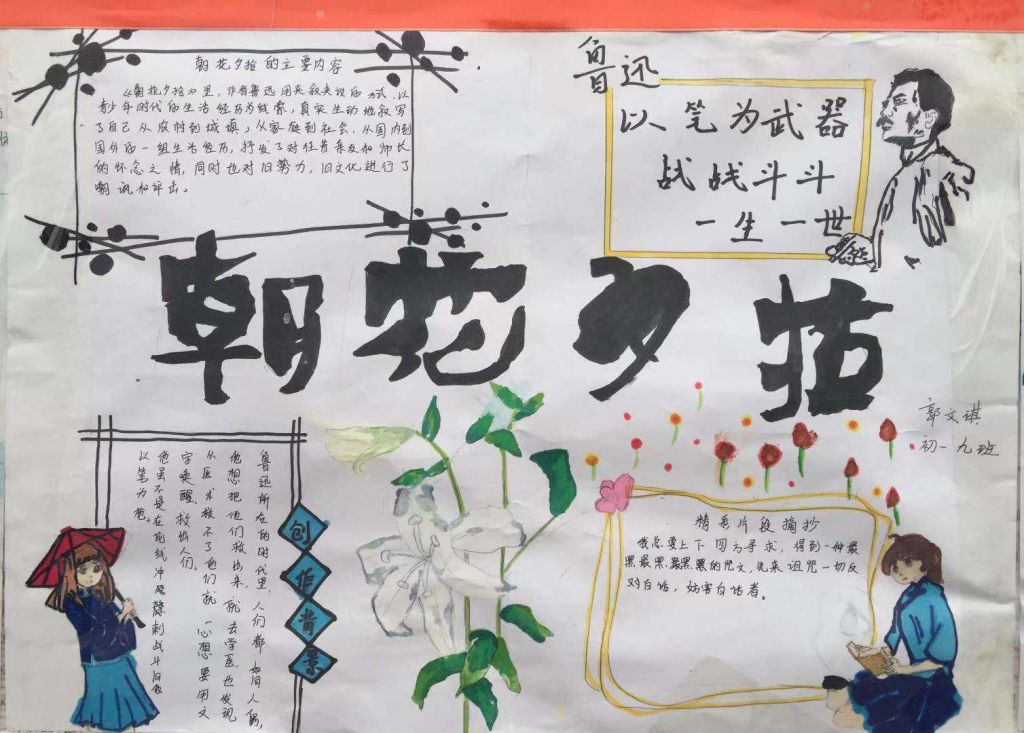 朝花夕拾的主要内容
《朝花夕拾》里,作者鲁迅用夹叙夹议的方式,以
青少年时代的生活经历为线索,真实生动地叙写
了自己从农村到城镇,从家庭到社会,从国内到
国外的一组生活经历,抒发了对往昔亲友和师长
的怀念之情,同时也对旧势力,旧文化进行了
嘲讽和抨击。
鲁迅
以笔为武器
战战斗斗
一生一世
朝花夕拾
郭文琪
初一九班
创作背景
鲁迅所在的时代里,人们都如盲人般,
他想把他们救出来,就去学医也发现
从医术救不了他们就「心想要用文
字唤醒,救世人们。
他虽不是在前线冲风险刺战斗但他
以笔为枪。
精彩片段摘抄
我总要上下四方寻求,得到一种最
黑最黑,最黑的咒文,先来诅咒一切反
对白话,妨害白话者。